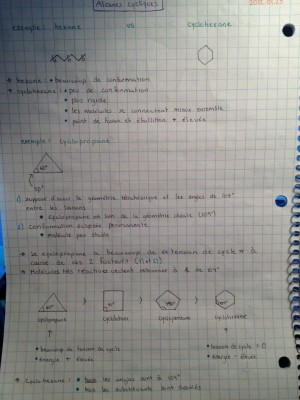 Alcanes cycliques
exemple: hexane vs cyclohexane
→ hexane: • beaucoup de conformation
→ cyclohexane: • peu de conformation
• plus rigide
• les molécules se connectent mieux ensemble
• point de fusion et ébullition + élevés
exemple: cyclopropane
60°
sp³
1) suppose d'avoir la géométrie tétraédrique et les angles de 109°
entre les liaisons
• cyclopropane est loin de la géométrie idéale (109°)
2) conformation éclipsée permanente
• molécule pas stable
→ Le cyclopropane a beaucoup de tension de cycle à
cause de ces 2 facteurs (1) et 2))
→ Molécules très réactives veulent retourner à de 109°
60° > 90° > >
cyclopropane cyclobutane cyclopentane cyclohexane
• beaucoup de tension de cycle • tension de cycle = 0
• énergie + élevée • énergie - élevée
→ Cyclohexane: • tous les angles sont à 109°
• tous les substituants sont décalés